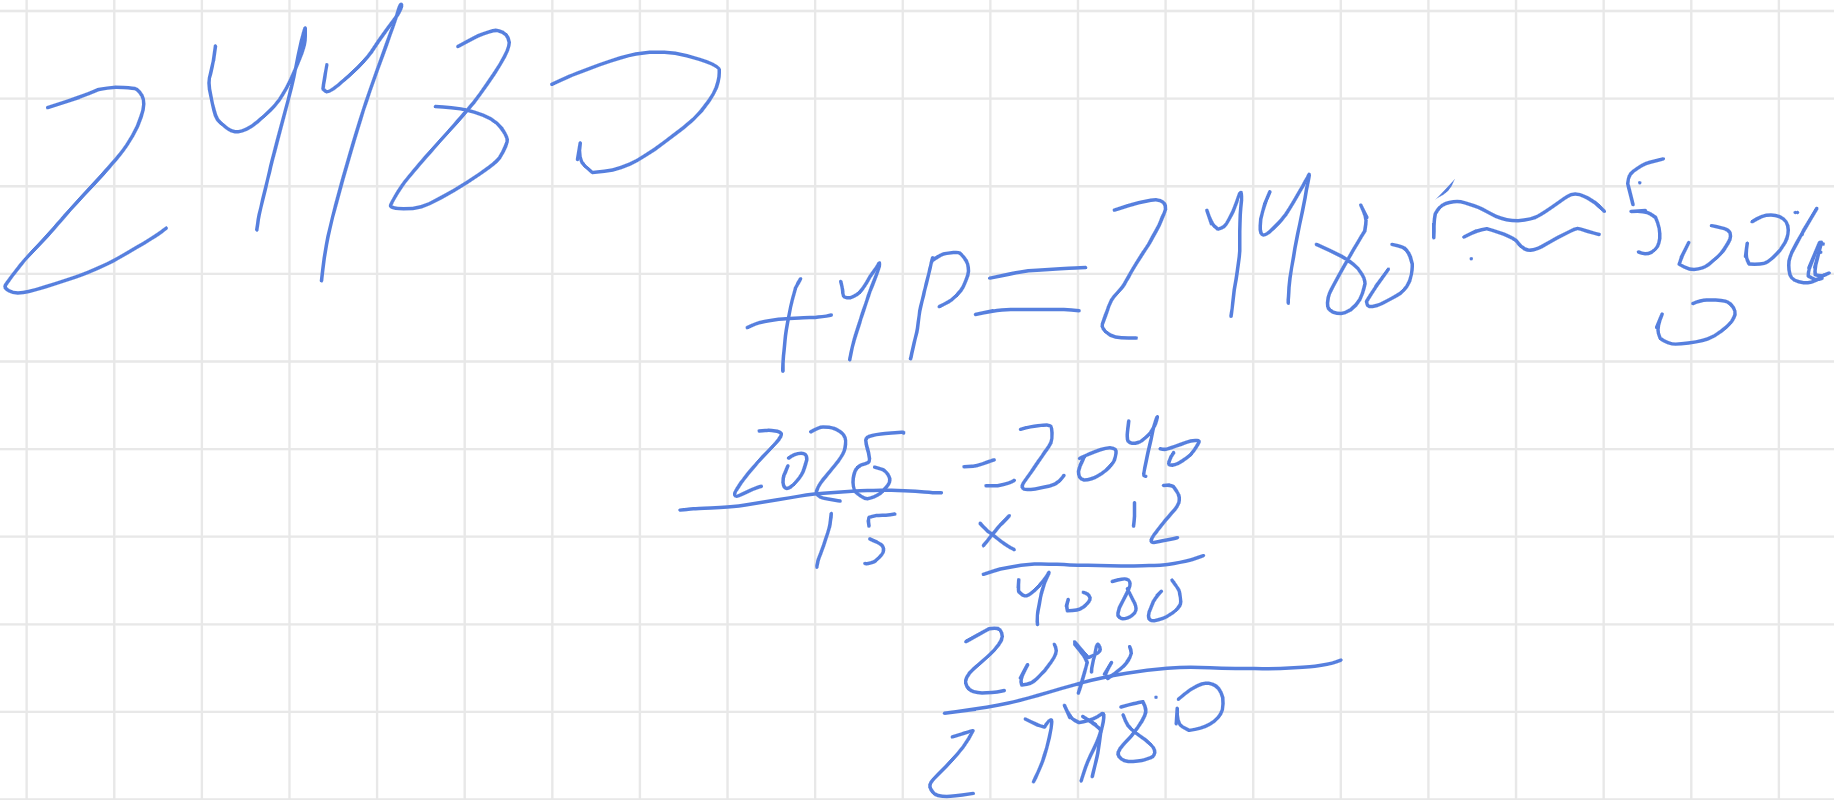 24480
+ 4 P = 24480 ≈ 5000
0
2025 = 2040
15 × 12
4080
2040
24480